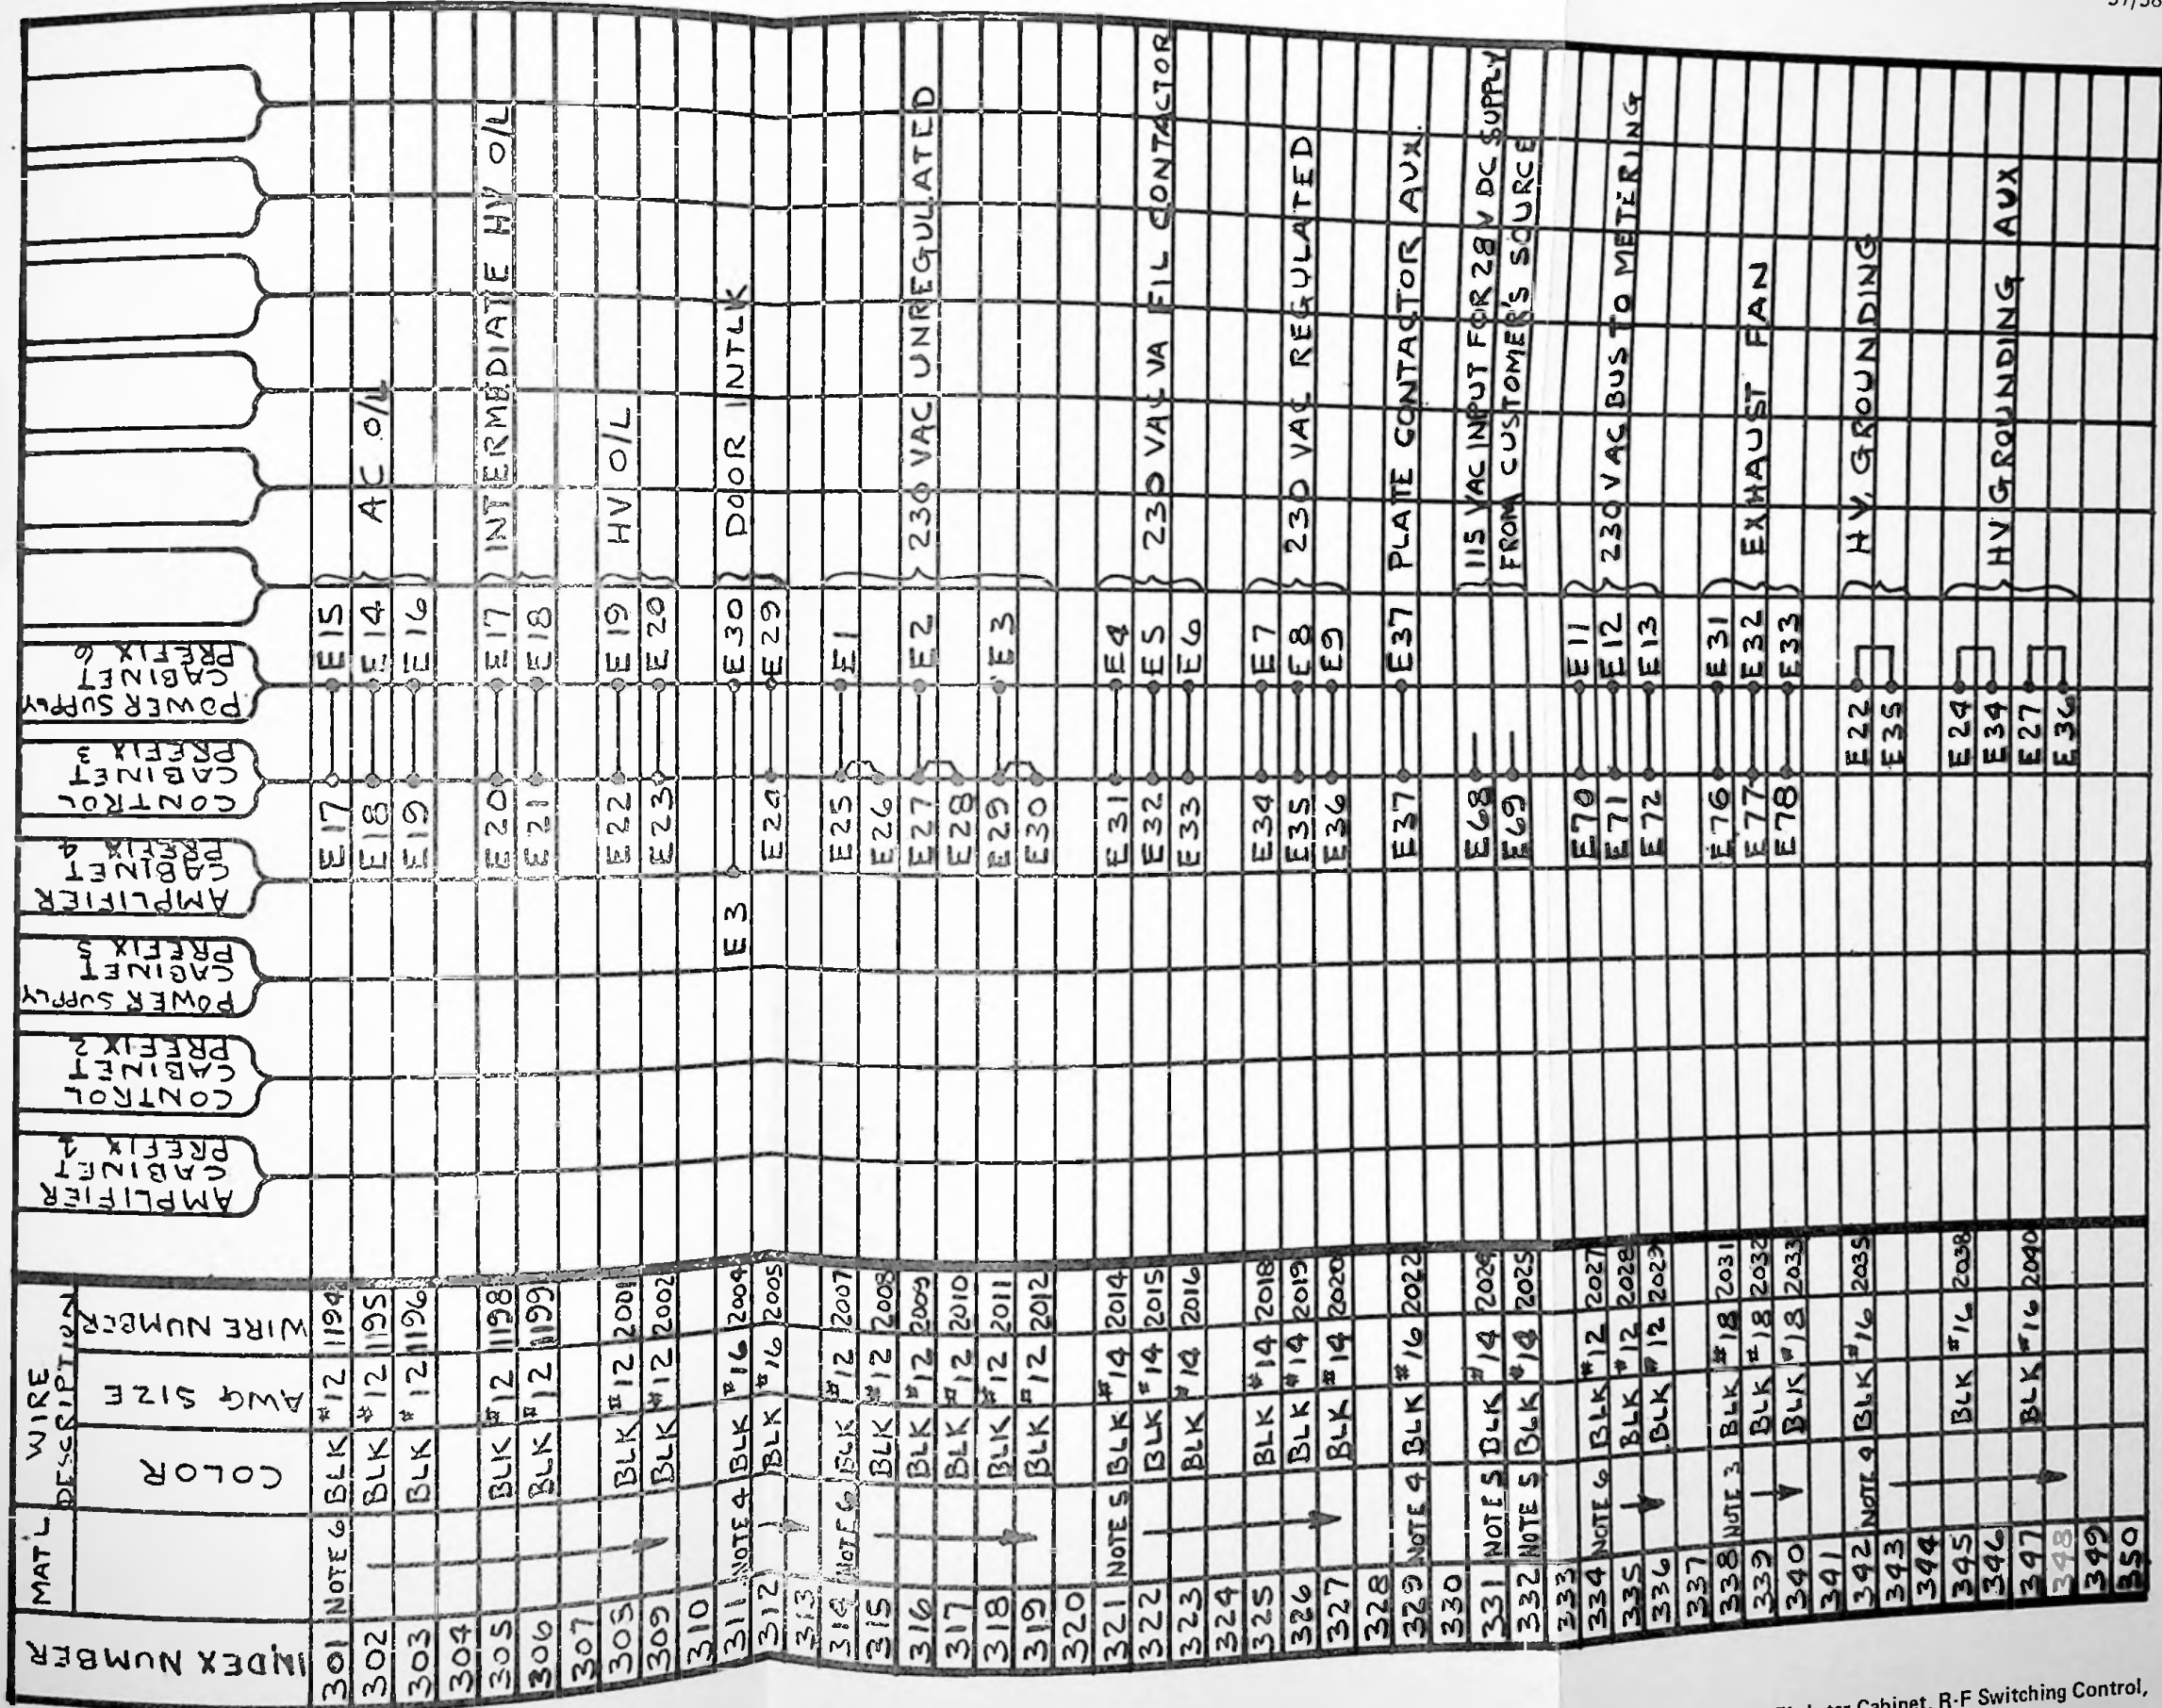 37/38
INDEX NUMBER
MAT'L
WIRE DESCRIPTION
COLOR
AWG SIZE
WIRE NUMBER
AMPLIFIER CABINET PREFIX 1
CONTROL CABINET PREFIX 2
POWER SUPPLY CABINET PREFIX 5
AMPLIFIER CABINET PREFIX 4
CONTROL CABINET PREFIX 3
POWER SUPPLY CABINET PREFIX 6
301 NOTE 6 BLK #12 1194 E17 E15
302 BLK #12 1195 E18 E14 AC O/L
303 BLK #12 1196 E19 E16
304
305 BLK #12 1198 E20 E17 INTERMEDIATE HV O/L
306 BLK #12 1199 E21 E18
307
308 BLK #12 2001 E22 E19 HV O/L
309 BLK #12 2002 E23 E20
310
311 NOTE 4 BLK #16 2004 E3 E30 DOOR INTLK
312 BLK #16 2005 E24 E29
313
314 NOTE 6 BLK #12 2007 E25 E1
315 BLK #12 2008 E26
316 BLK #12 2009 E27 E2 230 VAC UNREGULATED
317 BLK #12 2010 E28
318 BLK #12 2011 E29 E3
319 BLK #12 2012 E30
320
321 NOTE 5 BLK #14 2014 E31 E4
322 BLK #14 2015 E32 E5 230 VAC VA FIL CONTACTOR
323 BLK #14 2016 E33 E6
324
325 BLK #14 2018 E34 E7
326 BLK #14 2019 E35 E8 230 VAC REGULATED
327 BLK #14 2020 E36 E9
328
329 NOTE 4 BLK #16 2022 E37 E37 PLATE CONTACTOR AUX.
330
331 NOTE 5 BLK #14 2024 E68 115 VAC INPUT FOR 28 V DC SUPPLY
332 NOTE 5 BLK #14 2025 E69 FROM CUSTOMER'S SOURCE
333
334 NOTE 6 BLK #12 2027 E70 E11
335 BLK #12 2028 E71 E12 230 VAC BUS TO METERING
336 BLK #12 2029 E72 E13
337
338 NOTE 3 BLK #18 2031 E76 E31
339 BLK #18 2032 E77 E32 EXHAUST FAN
340 BLK #18 2033 E78 E33
341
342 NOTE 4 BLK #16 2035 E22 HV. GROUNDING
343 E35
344
345 BLK #16 2038 E24
346 E34 HV GROUNDING AUX
347 BLK #16 2040 E27
348 E36
349
350
Cabinet, R-F Switching Control,